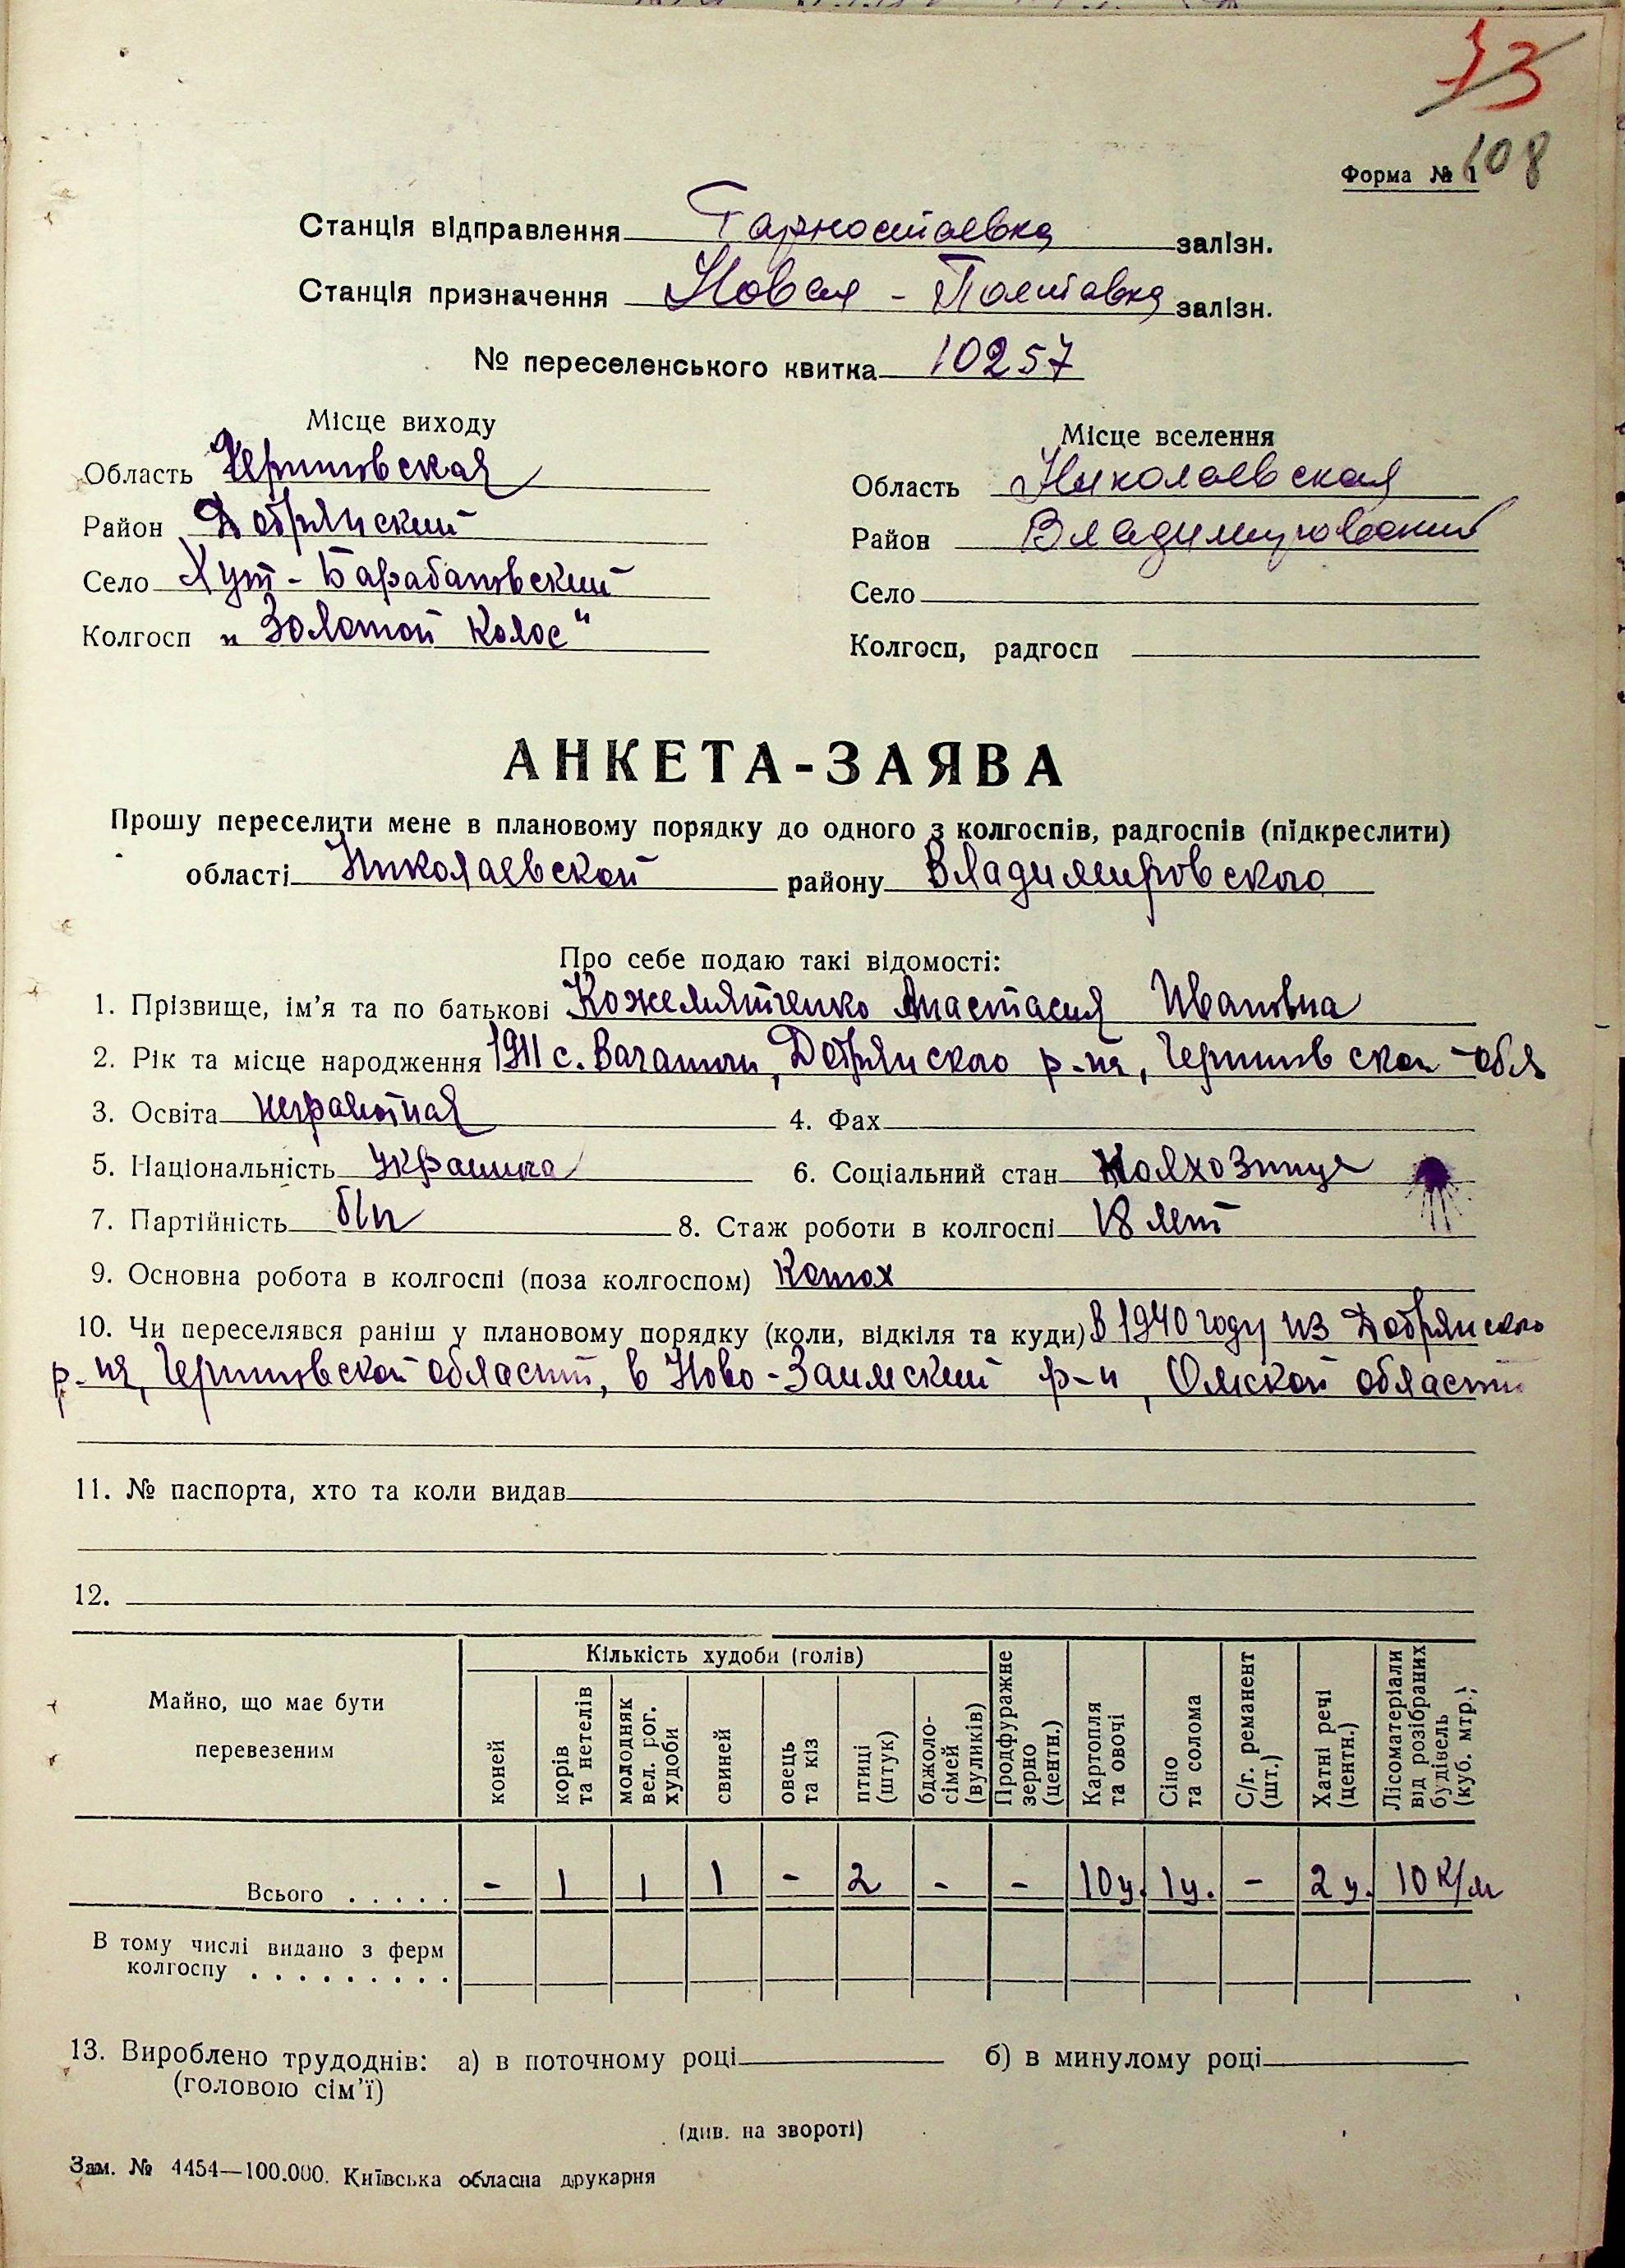 13
108
Форма № 1
Станція відправлення Горностаевка залізн.
Станція призначення Новая - Полтавка залізн.
№ переселенського квитка 10257
Місце виходу
Область Черниговская
Район Добрянский
Село Хут-Барабановский
Колгосп „Золотой Колос"
Місце вселення
Область Николаевская
Район Владимировский
Село
Колгосп, радгосп
АНКЕТА-ЗАЯВА
Прошу переселити мене в плановому порядку до одного з колгоспів, радгоспів (підкреслити)
області Николаевской району Владимировского
Про себе подаю такі відомості:
1. Прізвище, ім'я та по батькові Кожемятченко Анастасия Ивановна
2. Рік та місце народження 1911 с. Добрянского р-на, Черниговской обл
3. Освіта неграмотная 4. Фах
5. Національність украинка 6. Соціальний стан Колхозница
7. Партійність б/п 8. Стаж роботи в колгоспі 18 лет
9. Основна робота в колгоспі (поза колгоспом)
10. Чи переселявся раніш у плановому порядку (коли, відкіля та куди) В 1940 году из Добрянского
р-на, Черниговской области, в Ново-Заимский р-н, Омской области
11. № паспорта, хто та коли видав
12.
Майно, що має бути перевезеним
Кількість худоби (голів)
коней
корів та нетелів
молодняк вел. рог. худоби
свиней
овець та кіз
птиці (штук)
бджоло-сімей (вуликів)
Продфуражне зерно (центн.)
Картопля та овочі
Сіно та солома
С/г. реманент (шт.)
Хатні речі (центн.)
Лісоматеріали від розібраних будівель (куб. мтр.)
Всього . . . . . - 1 1 1 - 2 - - 10 ц. 1 ц. - 2 ц. 10 к/м
В тому числі видано з ферм
колгоспу . . . . . . . . .
13. Вироблено трудоднів: а) в поточному році б) в минулому році
(головою сім'ї)
(див. на звороті)
Зам. № 4454—100.000. Київська обласна друкарня